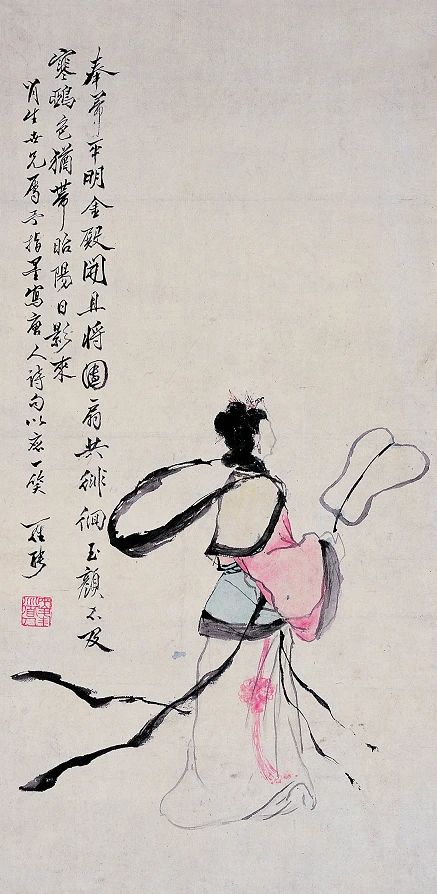 奉箒平明金殿開且將團扇共徘徊玉顏不及
寒鵶色猶帶昭陽日影來
肖生世兄屬予指墨寫唐人詩句以應一笑 羅聘